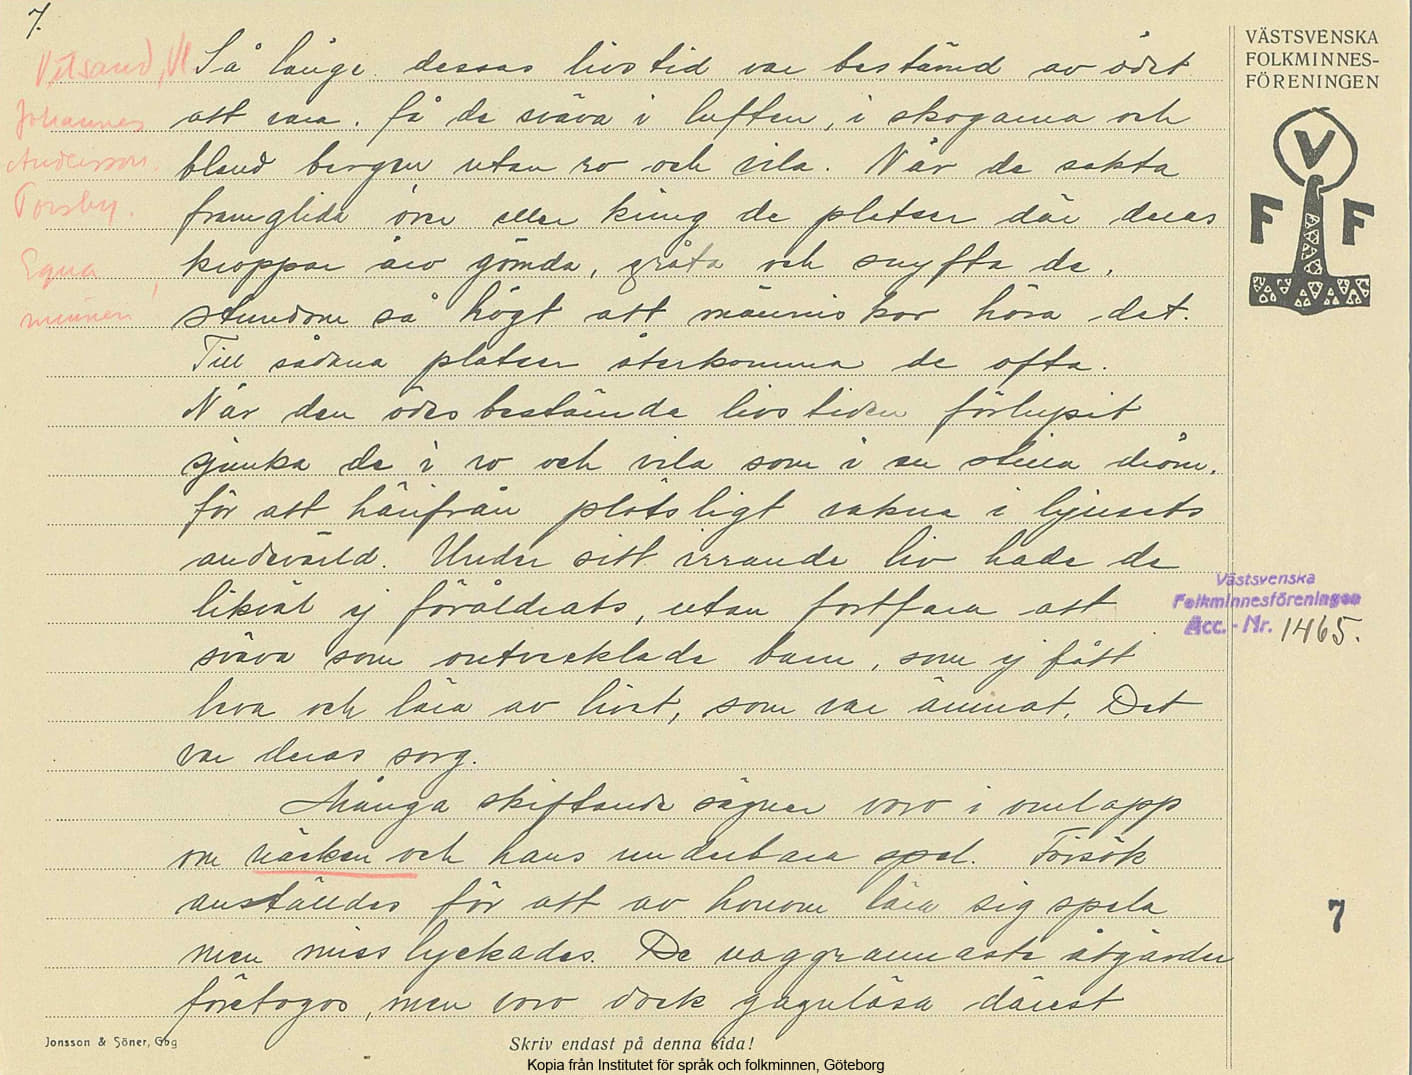 7.
Vitsand, Vl
Johannes
Andersson.
Torsby.
Egna
minnen
Så länge dessas livstid var bestämd av ödet
att vara. få de sväva i luften, i skogarna och
bland bergen utan ro och vila. När de sakta
framglida över eller kring de platser där deras
kroppar äro gömda, gråta och snyfta de,
stundom så högt att människor höra det.
Till sådana platser återkomma de ofta.
När den ödesbestämda livstiden förlupit
sjunka de i ro och vila som i en stilla dröm.
för att härifrån plötsligt vakna i ljusets
andevärld. Under sitt irrande liv hade de
likväl ej föråldrats, utan fortfara att
sväva som outvecklade barn, som ej fått
leva och lära av livet, som var ämnat. Det
var deras sorg.
Många skiftande sägner voro i omlopp
om näcken och hans underbara spel. Försök
anställdes för att av honom lära sig spela
men misslyckades. De noggrannaste åtgärder
företogos, men voro dock gagnlösa därest
VÄSTSVENSKA
FOLKMINNES-
FÖRENINGEN
V
F F
Västsvenska
Folkminnesföreningen
Acc. - Nr. 1465.
7
Jonsson & Söner, Gbg
Skriv endast på denna sida!
Kopia från Institutet för språk och folkminnen, Göteborg